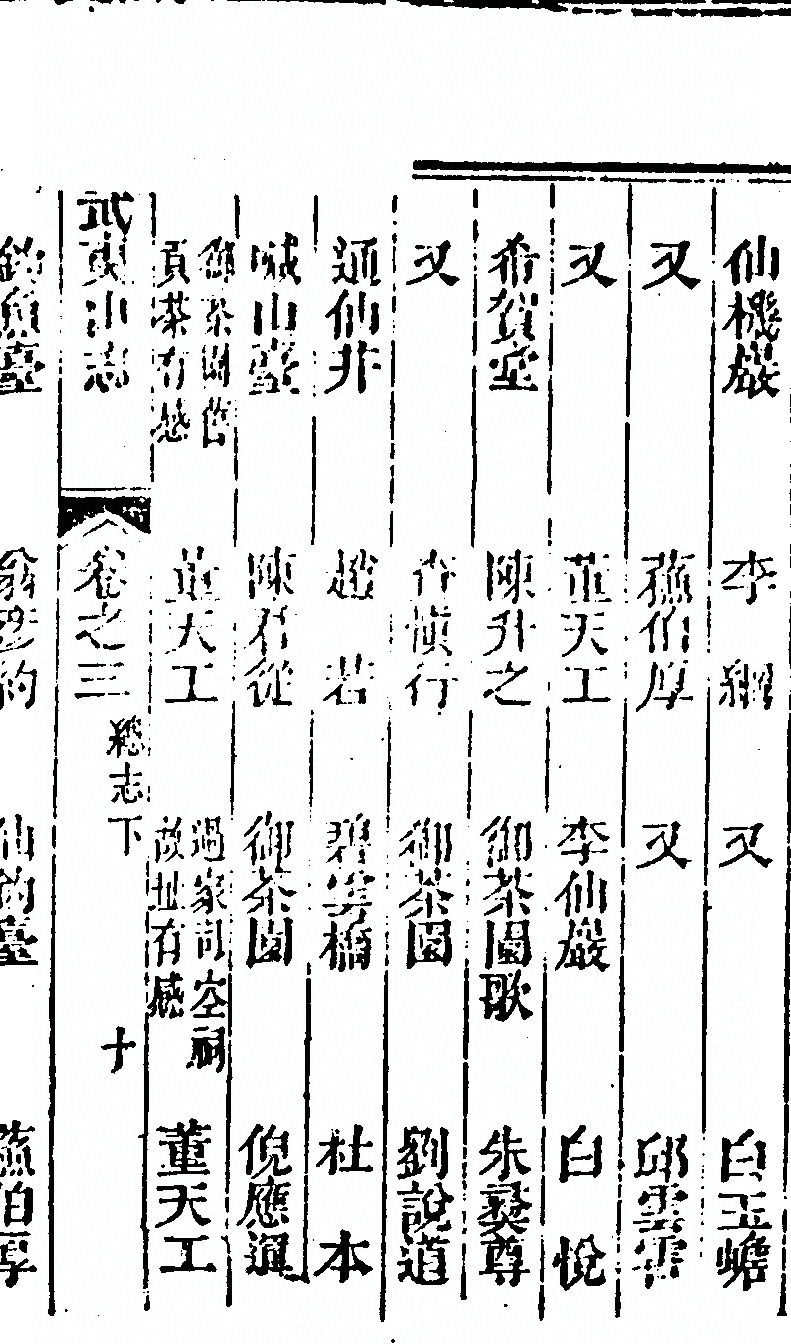 仙機巖 李綱 又 白玉蟾
又 蘇伯厚 又 邱雲霄
又 董天工 李仙巖 白悅
希賀堂 陳升之 御茶園歌 朱彝尊
又 查慎行 御茶園 劉說道
通仙井 趙若 碧雲橋 杜本
喊山臺 陳君從 御茶園 倪應
御茶園舊
貢茶有感 董天工 過家司空祠
故址有感 董天工
武夷山志 卷之三 總志下 十
釣魚臺 翁彦約 仙釣臺 蘇伯厚